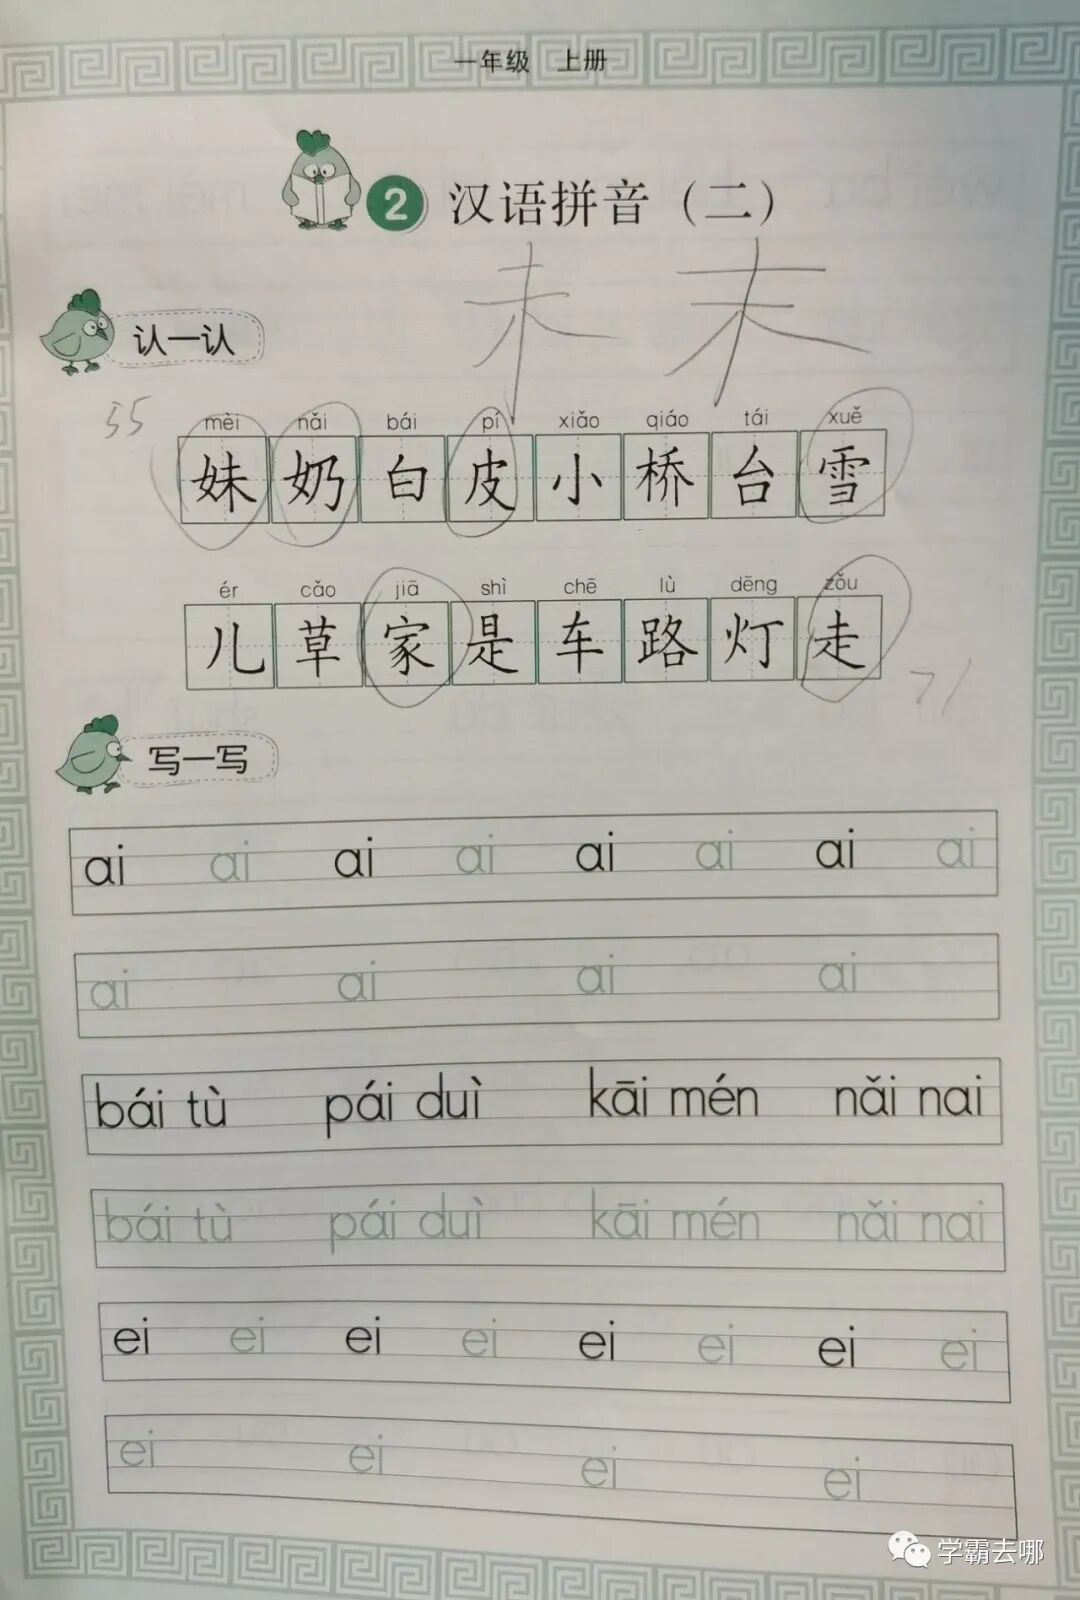 一年级 上册
2 汉语拼音（二）
未 末
认一认
55
mèi nǎi bái pí xiǎo qiáo tái xuě
妹 奶 白 皮 小 桥 台 雪
ér cǎo jiā shì chē lù dēng zǒu
儿 草 家 是 车 路 灯 走
71
写一写
ai ai ai ai ai ai ai ai
ai ai ai ai
bái tù pái duì kāi mén nǎi nai
bái tù pái duì kāi mén nǎi nai
ei ei ei ei ei ei ei ei
ei ei ei ei
学霸去哪